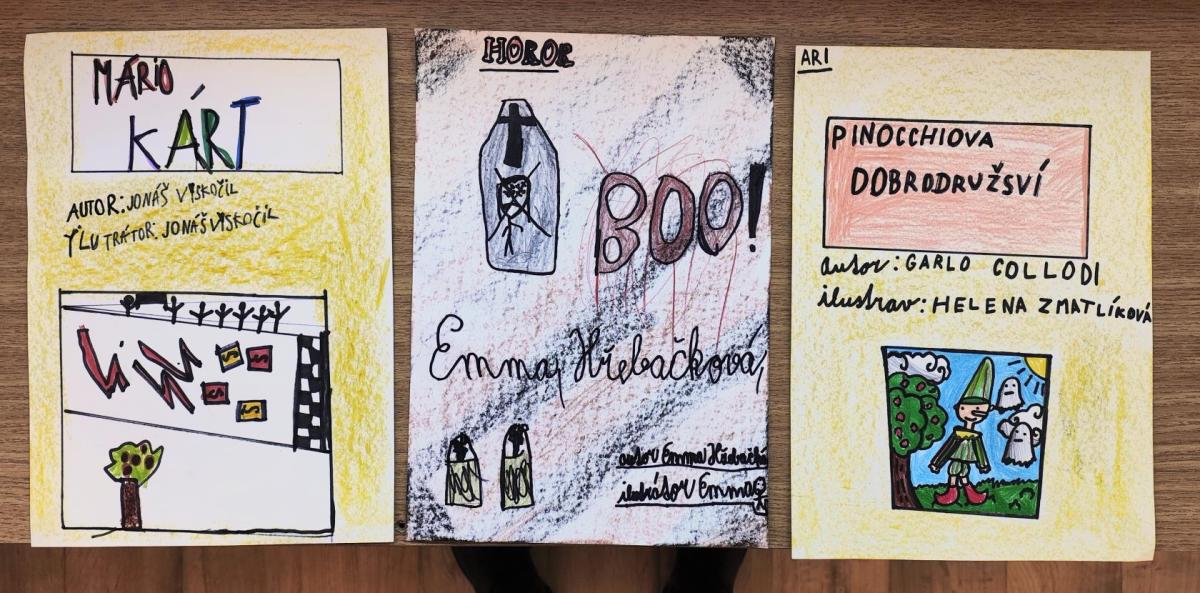 MÁRIO
KÁRT
AUTOR: JONÁŠ VYSKOČIL
YLUTRÁTOR: JONÁŠ VYSKOČIL
S S
S S
HOROR
BOO!
Emma, Hřebačková,
autor Emma Hřebačk
ilustrátor Emma
ARI
PINOCCHIOVA
DOBRODRUŽSVÍ
autor: GARLO COLLODI
ilustrav: HELENA ZMATLÍKOVÁ